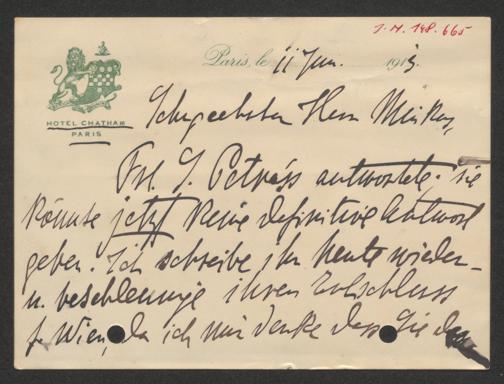 J.N. 148.665
Paris, le 11 Jun. 1913.
HOTEL CHATHAM
PARIS
Sehrgeehrter Herr
Frl. S. Petráss antwortete: sie
könnte jetzt keine definitive Antwort
geben. Ich schreibe ihr heute wieder
u. beschleunige ihren Entschluss
f. Wien, da ich mir denke dass Sie